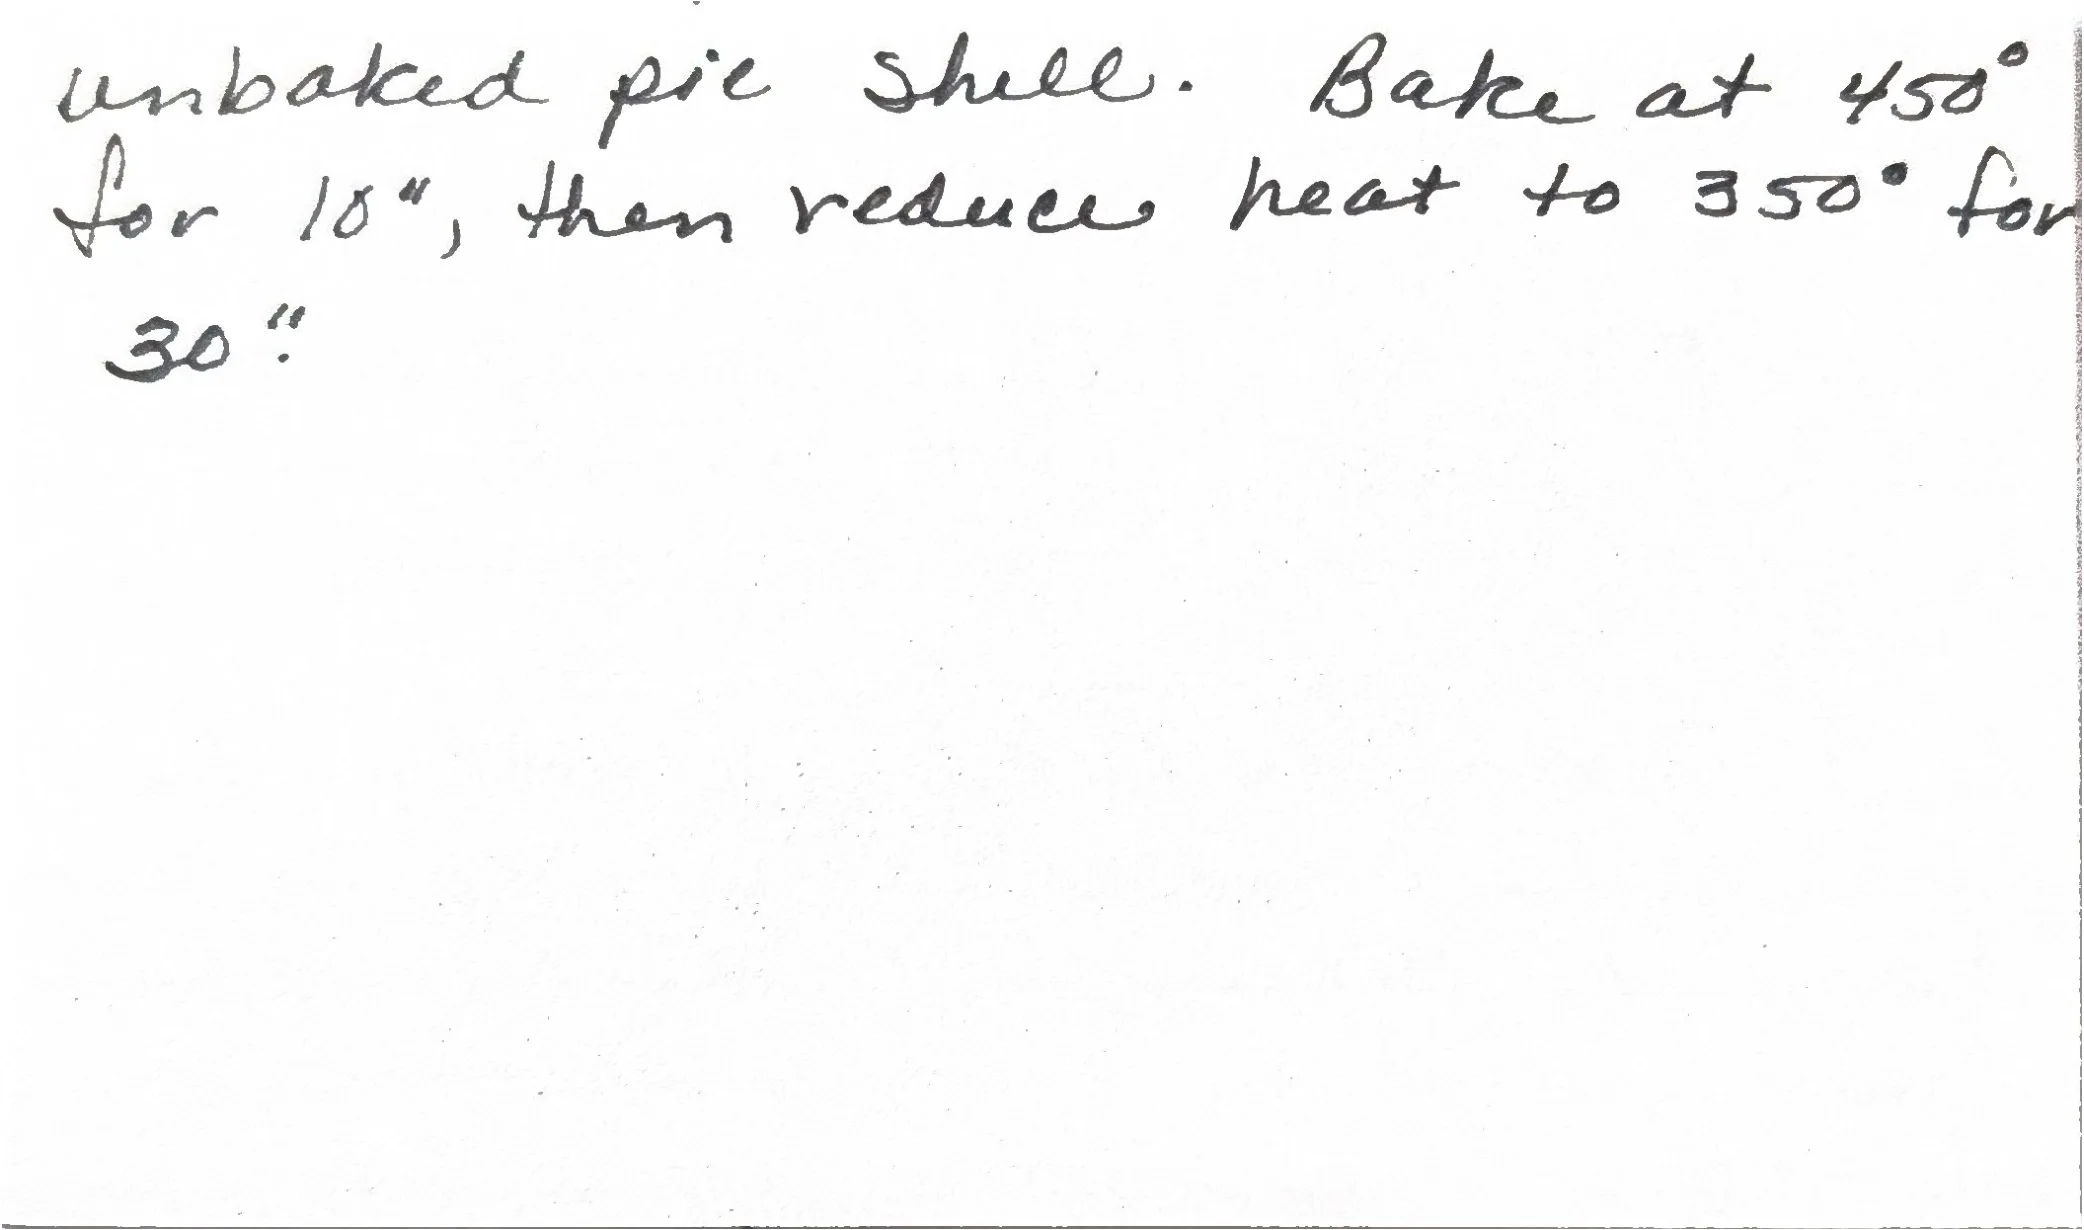 unbaked pie shell. Bake at 450°
for 10", then reduce heat to 350° for
30".